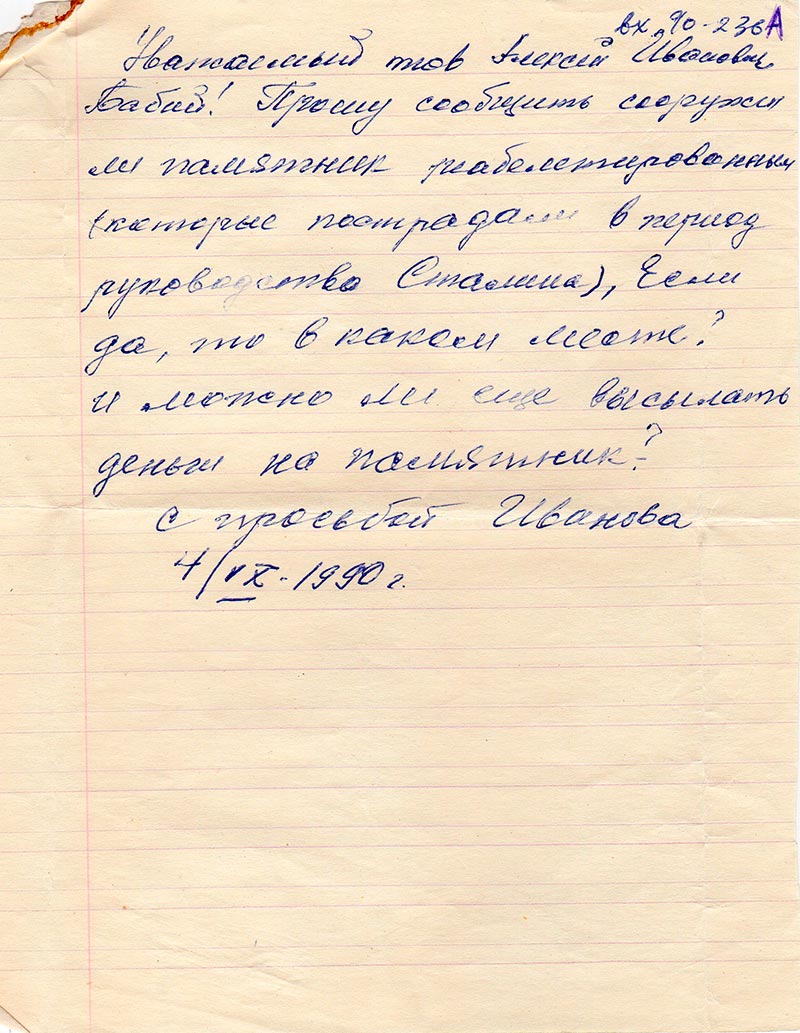 вх. 90-236А
Уважаемый тов Алексей Иванович
Бабий! Прошу сообщить сооружен
ли памятник реабелетированным
(которые пострадали в период
руководства Сталина), Если
да, то в каком месте?
и можно ли еще высылать
деньги на памятник?
с просьбой Иванова
4/IX-1990 г.